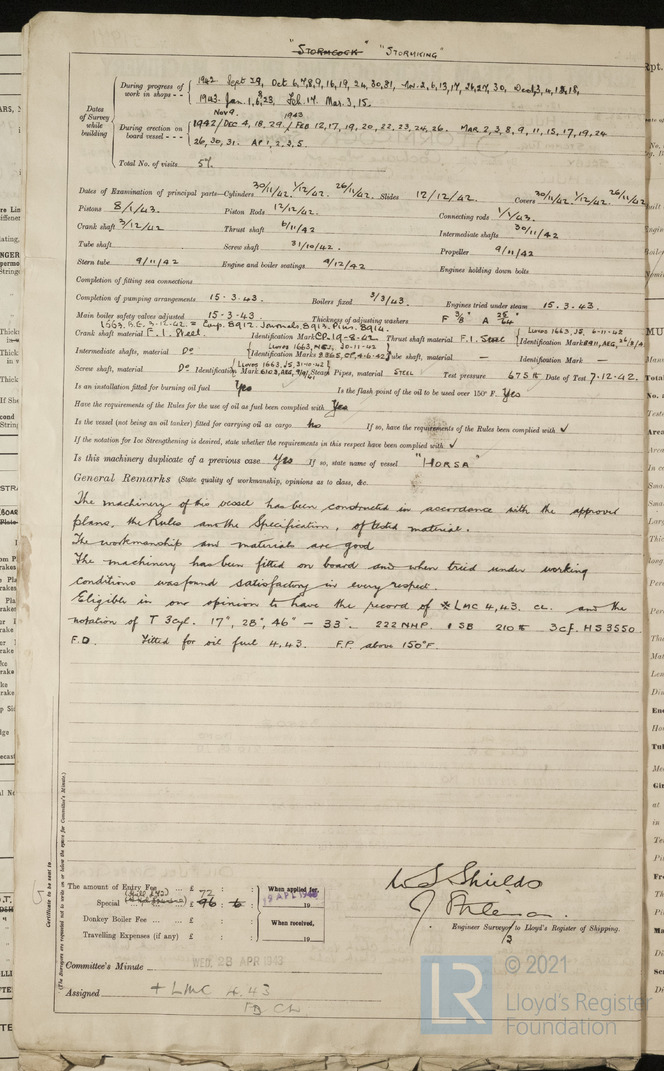 "STORMCOCK" "STORMKING"
During progress of work in shops - - 1942. Sept 29, Oct 6,7,8,9,16,19,24,30,31, Nov. 2,6,13,17,26,27,30, Dec 3,4,12,18,
1943. Jan. 1,6,23, Feb. 17. Mar. 3, 15.
Dates of Survey while building
Nov 9. 1943
During erection on board vessel - - - 1942/ DEC 4, 18, 29. / FEB 12, 17, 19, 20, 22, 23, 24, 26. MAR 2, 3, 8, 9, 11, 15, 17, 19, 24
26, 30, 31. AP 1, 2, 3, 5.
Total No. of visits 57.
Dates of Examination of principal parts—Cylinders 30/11/42. 1/12/42. 26/11/42. Slides 12/12/42. Covers 30/11/42. 1/12/42. 26/11/42
Pistons 8/1/43. Piston Rods 12/12/42. Connecting rods 1/1/43.
Crank shaft 3/12/42 Thrust shaft 6/11/42 Intermediate shafts 30/11/42
Tube shaft Screw shaft 31/10/42. Propeller 9/11/42
Stern tube 9/11/42 Engine and boiler seatings 4/12/42 Engines holding down bolts
Completion of fitting sea connections
Completion of pumping arrangements 15.3.43. Boilers fixed 3/3/43. Engines tried under steam 15.3.43.
Main boiler safety valves adjusted 15.3.43. Thickness of adjusting washers F 3/8" A 25/64"
1663. S.E. 3.12.42 = Comp. 8912. Journals. 8913. Pins. 8914.
Crank shaft material F. I. Steel. Identification Mark CP. 19-8-42 Thrust shaft material F. I. Steel Identification Mark LLOYDS 1663, JS, 6-11-42
Intermediate shafts, material Do Identification Marks LLOYDS 1663, 30-11-42 Tube shaft, material — Identification Mark —
Screw shaft, material Do Identification Mark LLOYDS 1663, JS, 31-10-42 Steam Pipes, material STEEL Test pressure 675 lb Date of Test 7.12.42.
Is an installation fitted for burning oil fuel Yes Is the flash point of the oil to be used over 150° F. Yes
Have the requirements of the Rules for the use of oil as fuel been complied with Yes
Is the vessel (not being an oil tanker) fitted for carrying oil as cargo No If so, have the requirements of the Rules been complied with ✓
If the notation for Ice Strengthening is desired, state whether the requirements in this respect have been complied with ✓
Is this machinery duplicate of a previous case Yes If so, state name of vessel "HORSA"
General Remarks (State quality of workmanship, opinions as to class, &c.
The machinery of this vessel has been constructed in accordance with the approved
plans, the Rules and the Specification, of tested material.
The workmanship and materials are good
The machinery has been fitted on board and when tried under working
conditions was found satisfactory in every respect
Eligible in our opinion to have the record of ✠ LMC 4,43. CL. and the
notation of T 3cyl. 17", 28", 46" – 33". 222 NHP. 1 SB 210 lb 3 cf. HS 3550
F.D. Fitted for oil fuel 4,43. F.P. above 150°F.
Certificate to be sent to
(The Surveyors are requested not to write on or below the space for Committee's Minute.)
The amount of Entry Fee ... £ 72 : :
Special ... £ 96 : 6 :
Donkey Boiler Fee ... £ : :
Travelling Expenses (if any) £ : :
When applied for,
19 APL 1943
When received,
19
W S Shields
Engineer Surveyor to Lloyd's Register of Shipping.
Committee's Minute WED. 28 APR 1943
Assigned + LMC 4.43
© 2021
LR
Lloyd's Register
Foundation